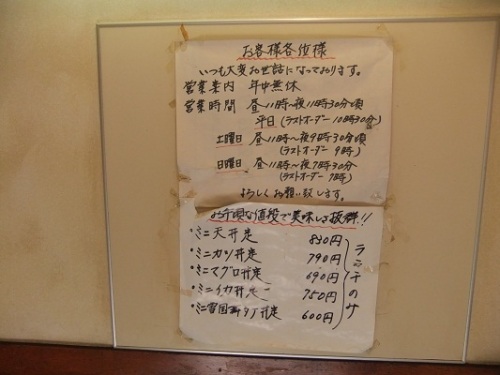 お客様各位様
いつも大変お世話になっております。
営業案内 年中無休
営業時間 昼11時〜夜11時30分頃
平日(ラストオーダー10時30分)
土曜日 昼11時〜夜9時30分頃
(ラストオーダー 9時)
日曜日 昼11時〜夜7時30分
(ラストオーダー 7時)
よろしくお願い致します。
お手頃な値段で美味しさ抜群!!
・ミニ天丼定 830円
・ミニカツ丼定 790円
・ミニマグロ丼定 690円
・ミニイカ丼定 750円
・ミニ 丼定 600円
ランチのみ